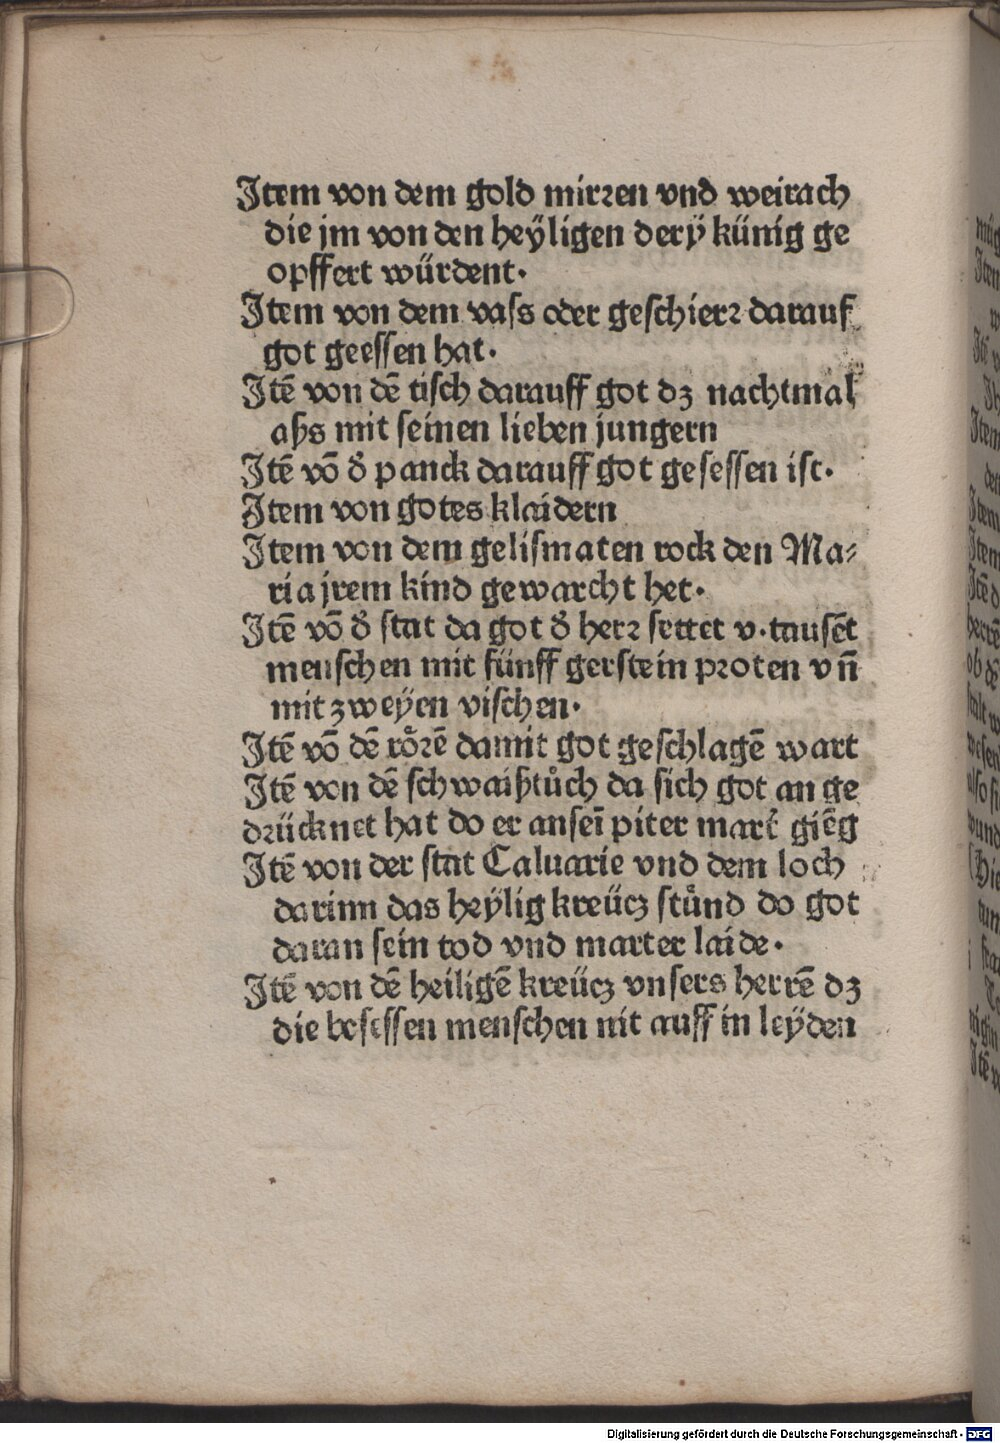 Item von dem gold mirꝛen vnd weirach
die jm von den heÿligen derÿ künig ge
opffert würdent.
Item von dem vass oder geschierꝛ darauf
got geessen hat.
Itē von dē tisch darauff got dʒ nachtmal
aßs mit seinen lieben jungern
Itē võ d̾ panck darauff got gesessen ist.
Item von gotes klaidern
Item von dem gelismaten rock den Ma⸗
ria jrem kind gewarcht het.
Itē võ d̾ stat da got d̾ herꝛ settet v. tausēt
menschen mit fünff gerstein pꝛoten vñ
mit zweÿen vischen.
Itē võ dē roͤꝛē damit got geschlagē wart
Itē von dē schwaißtuͦch da sich got an ge
dꝛücknet hat do er an seī piter mart̾ giēg
Itē von der stat Caluarie vnd dem loch
darinn das heÿlig kreücz stuͦnd do got
daran sein tod vnd marter laide.
Itē von dē heiligē kreücz vnsers herrē dʒ
die besessen menschen nit auff in leÿden
Digitalisierung gefördert durch die Deutsche Forschungsgemeinschaft - DFG